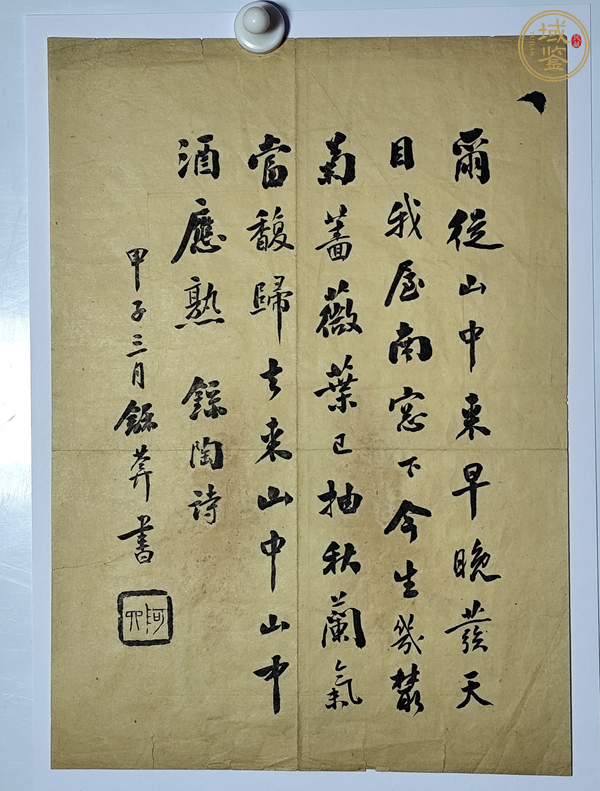 爾從山中来早晚發天
目我屋南窓下今生幾叢
菊薔薇葉已抽秋蘭氣
當馥歸去来山中山中
酒應熟 錄陶詩
甲子三月 莽書
域鉴